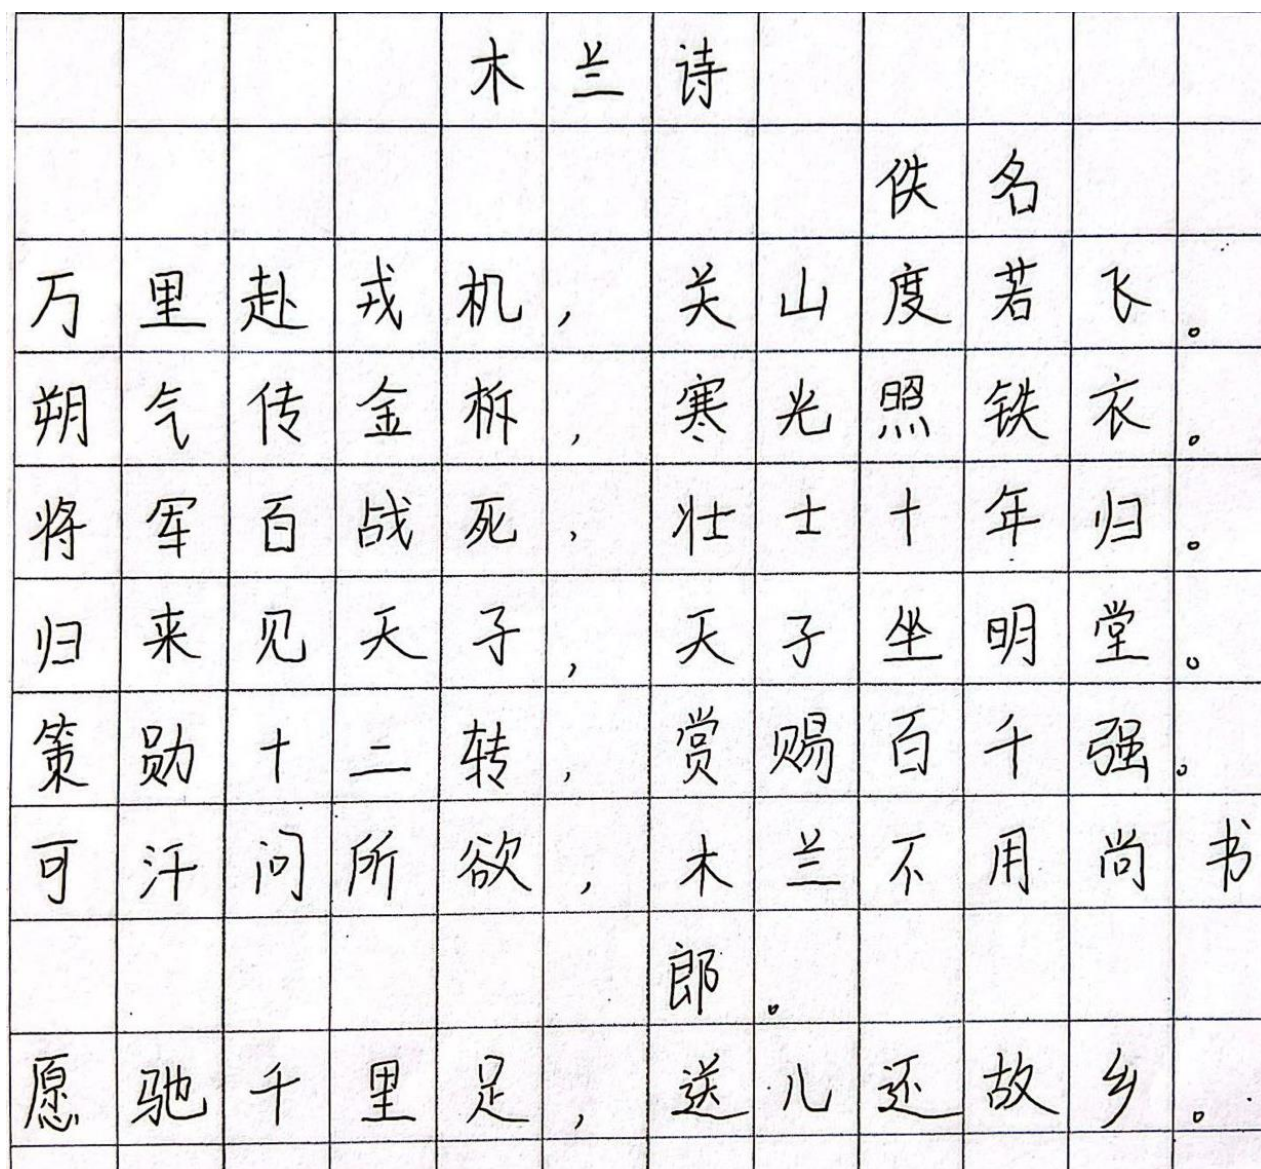 木兰诗
佚名
万里赴戎机，关山度若飞。
朔气传金柝，寒光照铁衣。
将军百战死，壮士十年归。
归来见天子，天子坐明堂。
策勋十二转，赏赐百千强。
可汗问所欲，木兰不用尚书
郎。
愿驰千里足，送儿还故乡。